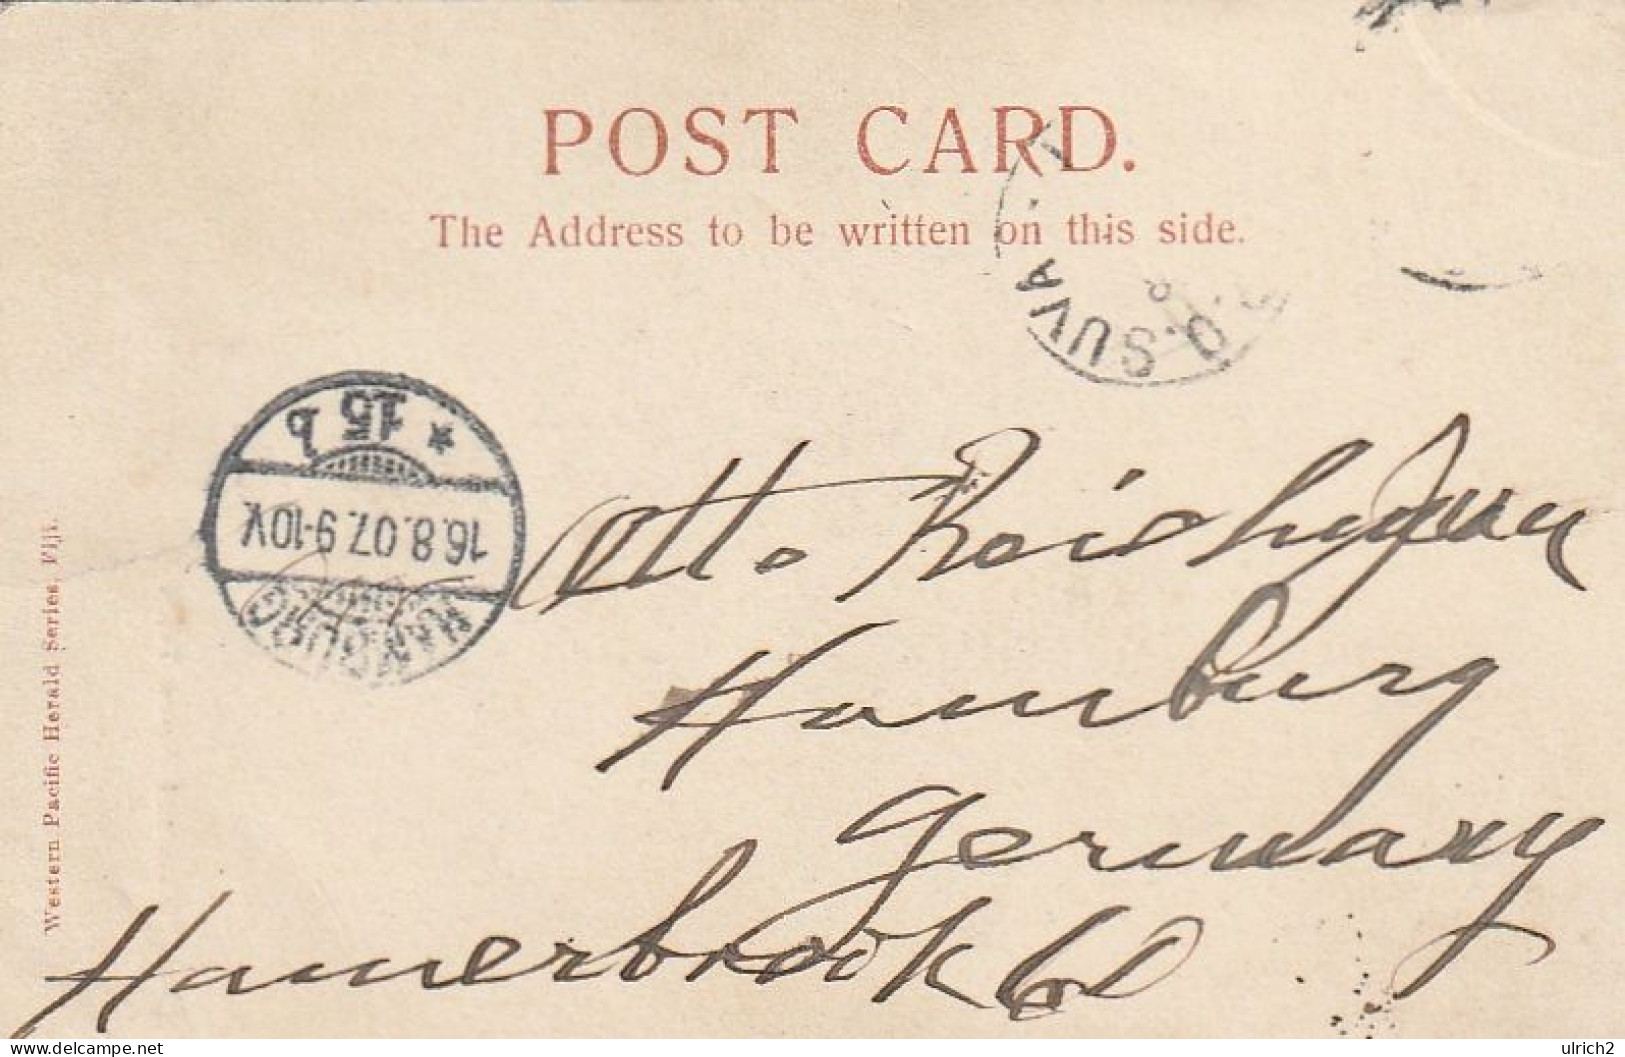 POST CARD.
The Address to be written on this side.
O. SUVA
* 15 b
16.8.07. 9-10V.
HAMBURG
Otto
Hamburg
Germany
Hamerbrook 60
Western Pacific Herald Series, Fiji.
delcampe.net
ulrich2